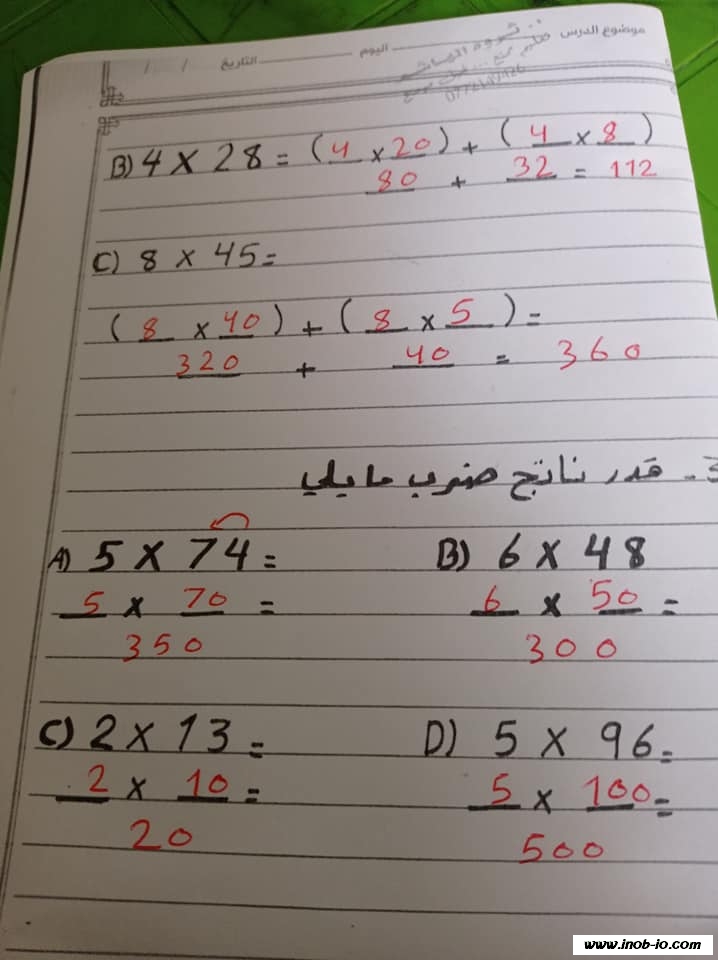 موضوع الدرس
اليوم
التاريخ / /
B) 4 × 28 = (4 × 20) + (4 × 8)
80 + 32 = 112
C) 8 × 45 =
(8 × 40) + (8 × 5) =
320 + 40 = 360
3- قدر ناتج ضرب ما يلي
A) 5 × 74 =
5 × 70 =
350
B) 6 × 48
6 × 50 =
300
C) 2 × 13 =
2 × 10 =
20
D) 5 × 96 =
5 × 100 =
500
www.inob-io.com